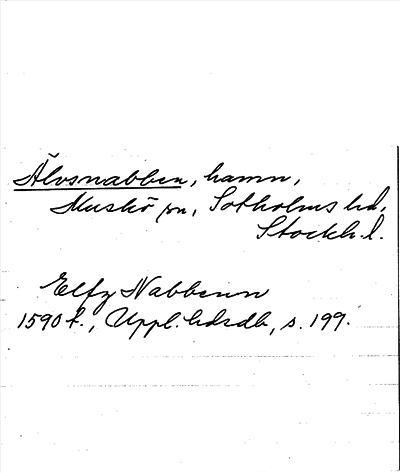 Älvsnabben, hamn,
Muskö sn, Sotholms hd,
Stockh. l.
Elfz Nabbenn
1590 f., Uppl. hdrdb, s. 199.